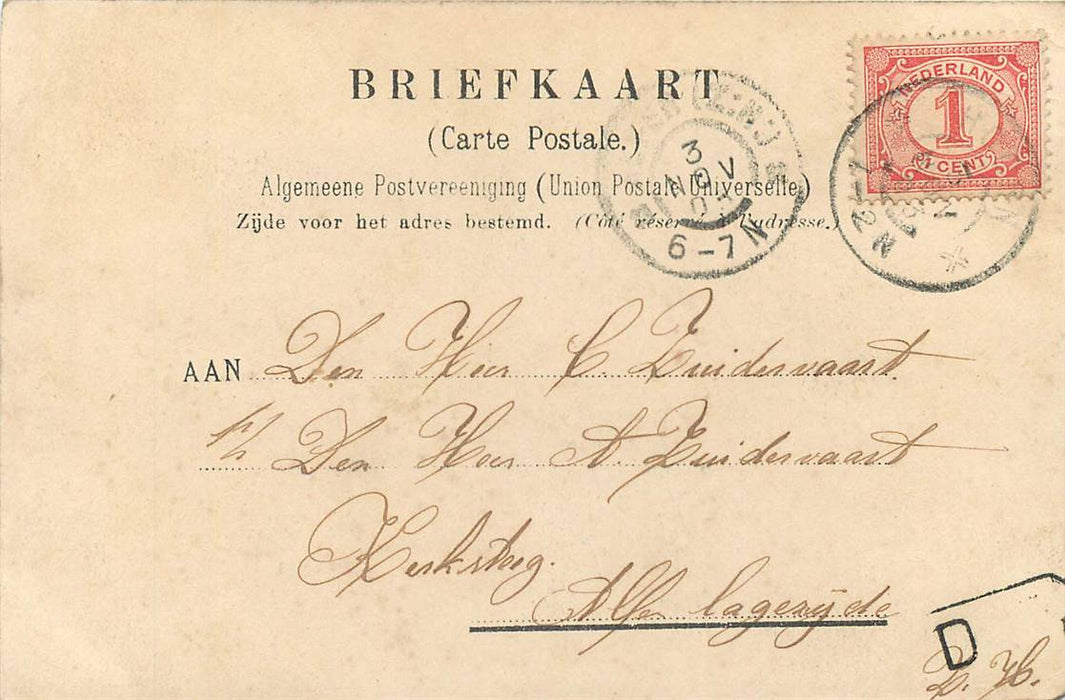 BRIEFKAART
(Carte Postale.)
Algemeene Postvereeniging (Union Postale Universelle)
Zijde voor het adres bestemd. (Côté réservé à l'adresse.)
NEDERLAND
1
CENT
3
NOV
6-7N
N
AAN Den Heer C. Zuidervaart.
p/a Den Heer A. Zuidervaart
Kerksteeg.
Alfen lagezijde
D
Z. H.